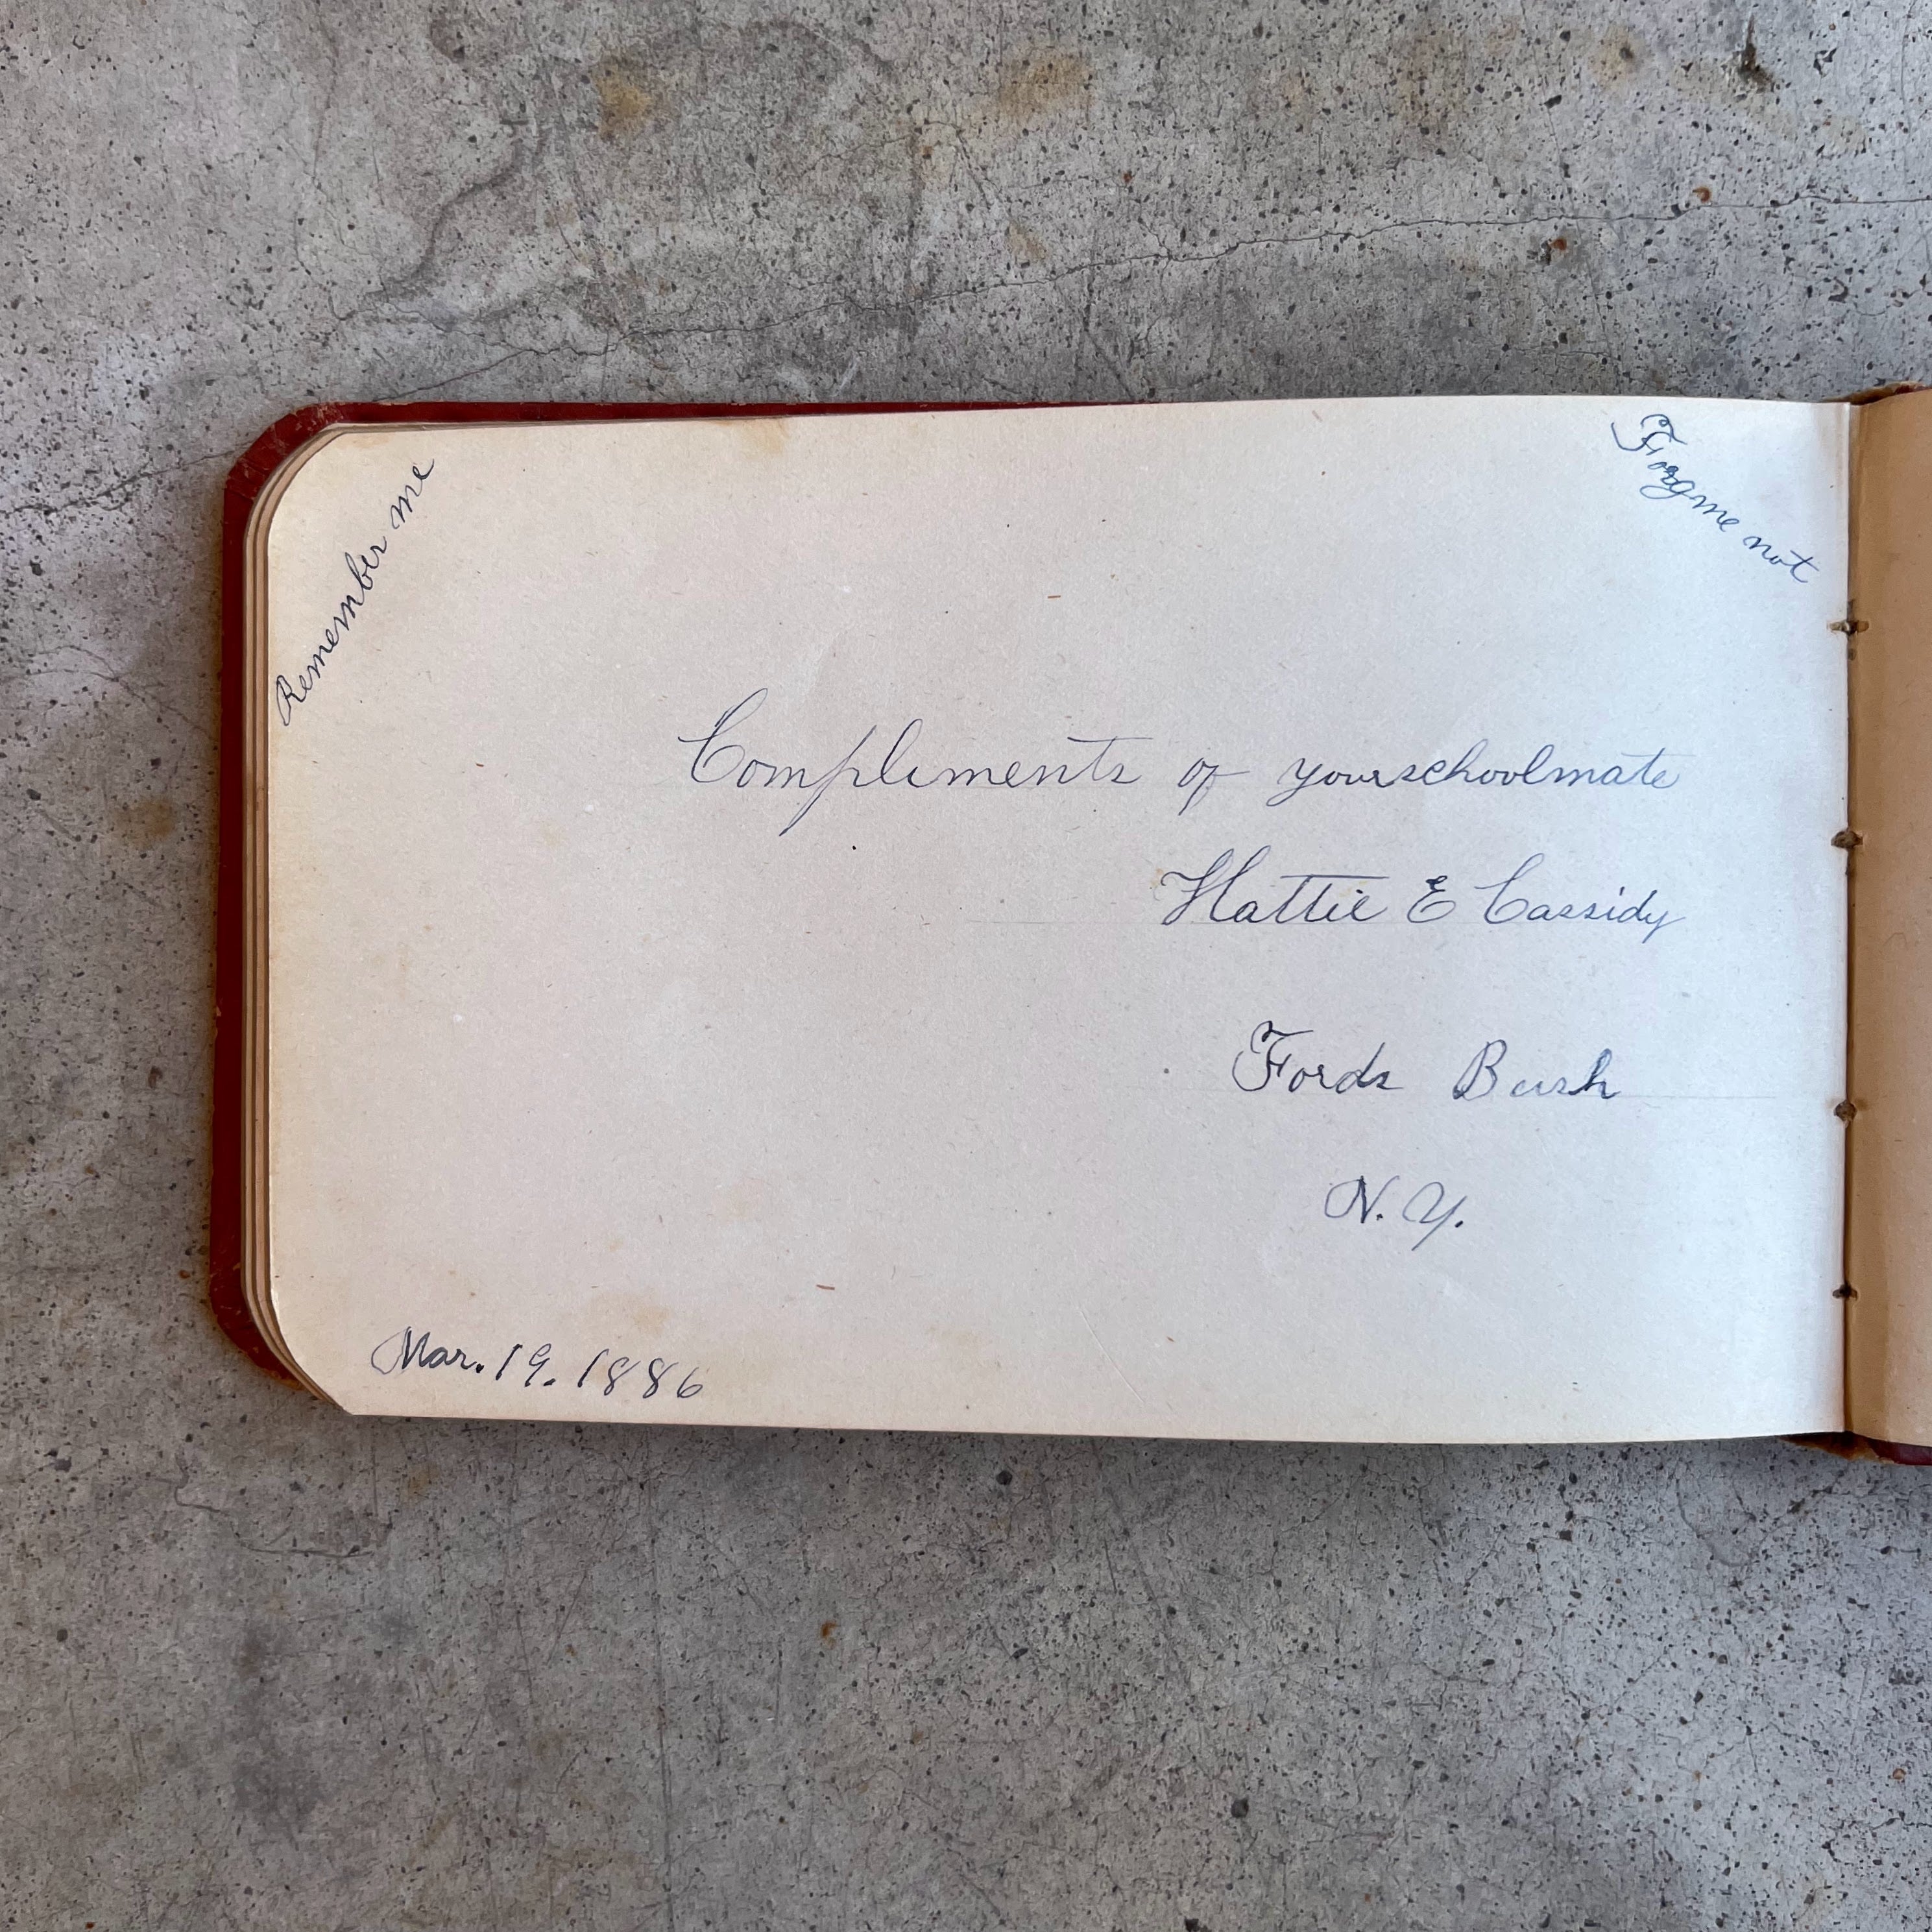 Remember me
Forg me not
Compliments of your schoolmate
Hattie E Cassidy
Fords Bush
N. Y.
Mar. 19. 1886